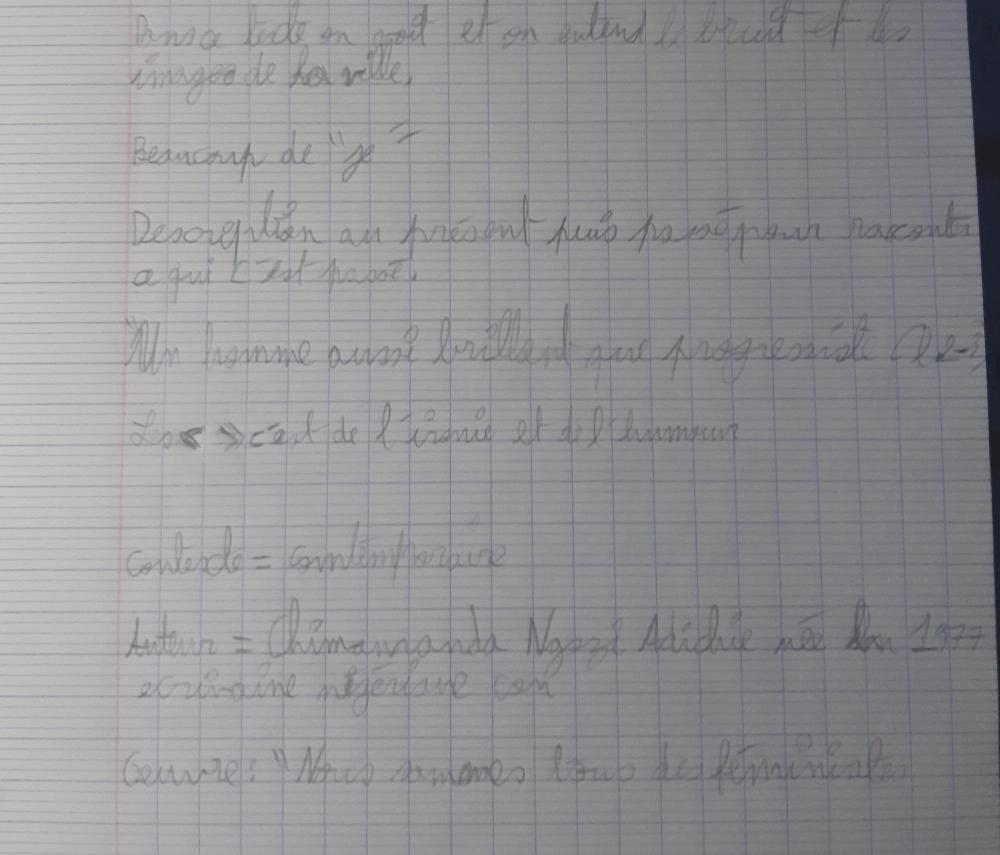 Dans ce texte on voit et on entend le bruit et les
images de la ville.
Beaucoup de "je"
Description au présent puis passé pour raconter
ce qui c'est passé.
"Un homme aussi brillant que progressiste (l 2-3
Les < > c'est de l'ironie et de l'humour
contexte = contemporaine
Auteur = Chimamanda Ngozi Adichie née en 1977
ecrivaine nigeriane
Oeuvre : "Nous sommes tous des féministes